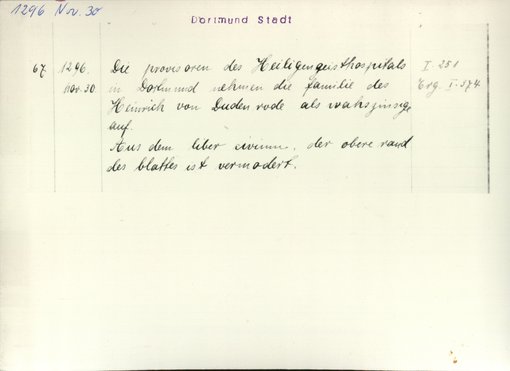 1296 Nov. 30
Dortmund Stadt
67. 1296. Die provisoren des Heiligengeisthospitals I 251
Nov. 30. in Dortmund nehmen die familie des Erg. I 374
Heinrich von Duden rode als wahszinsige
auf.
Aus dem liber civium, der obere rand
des blattes ist vermodert.